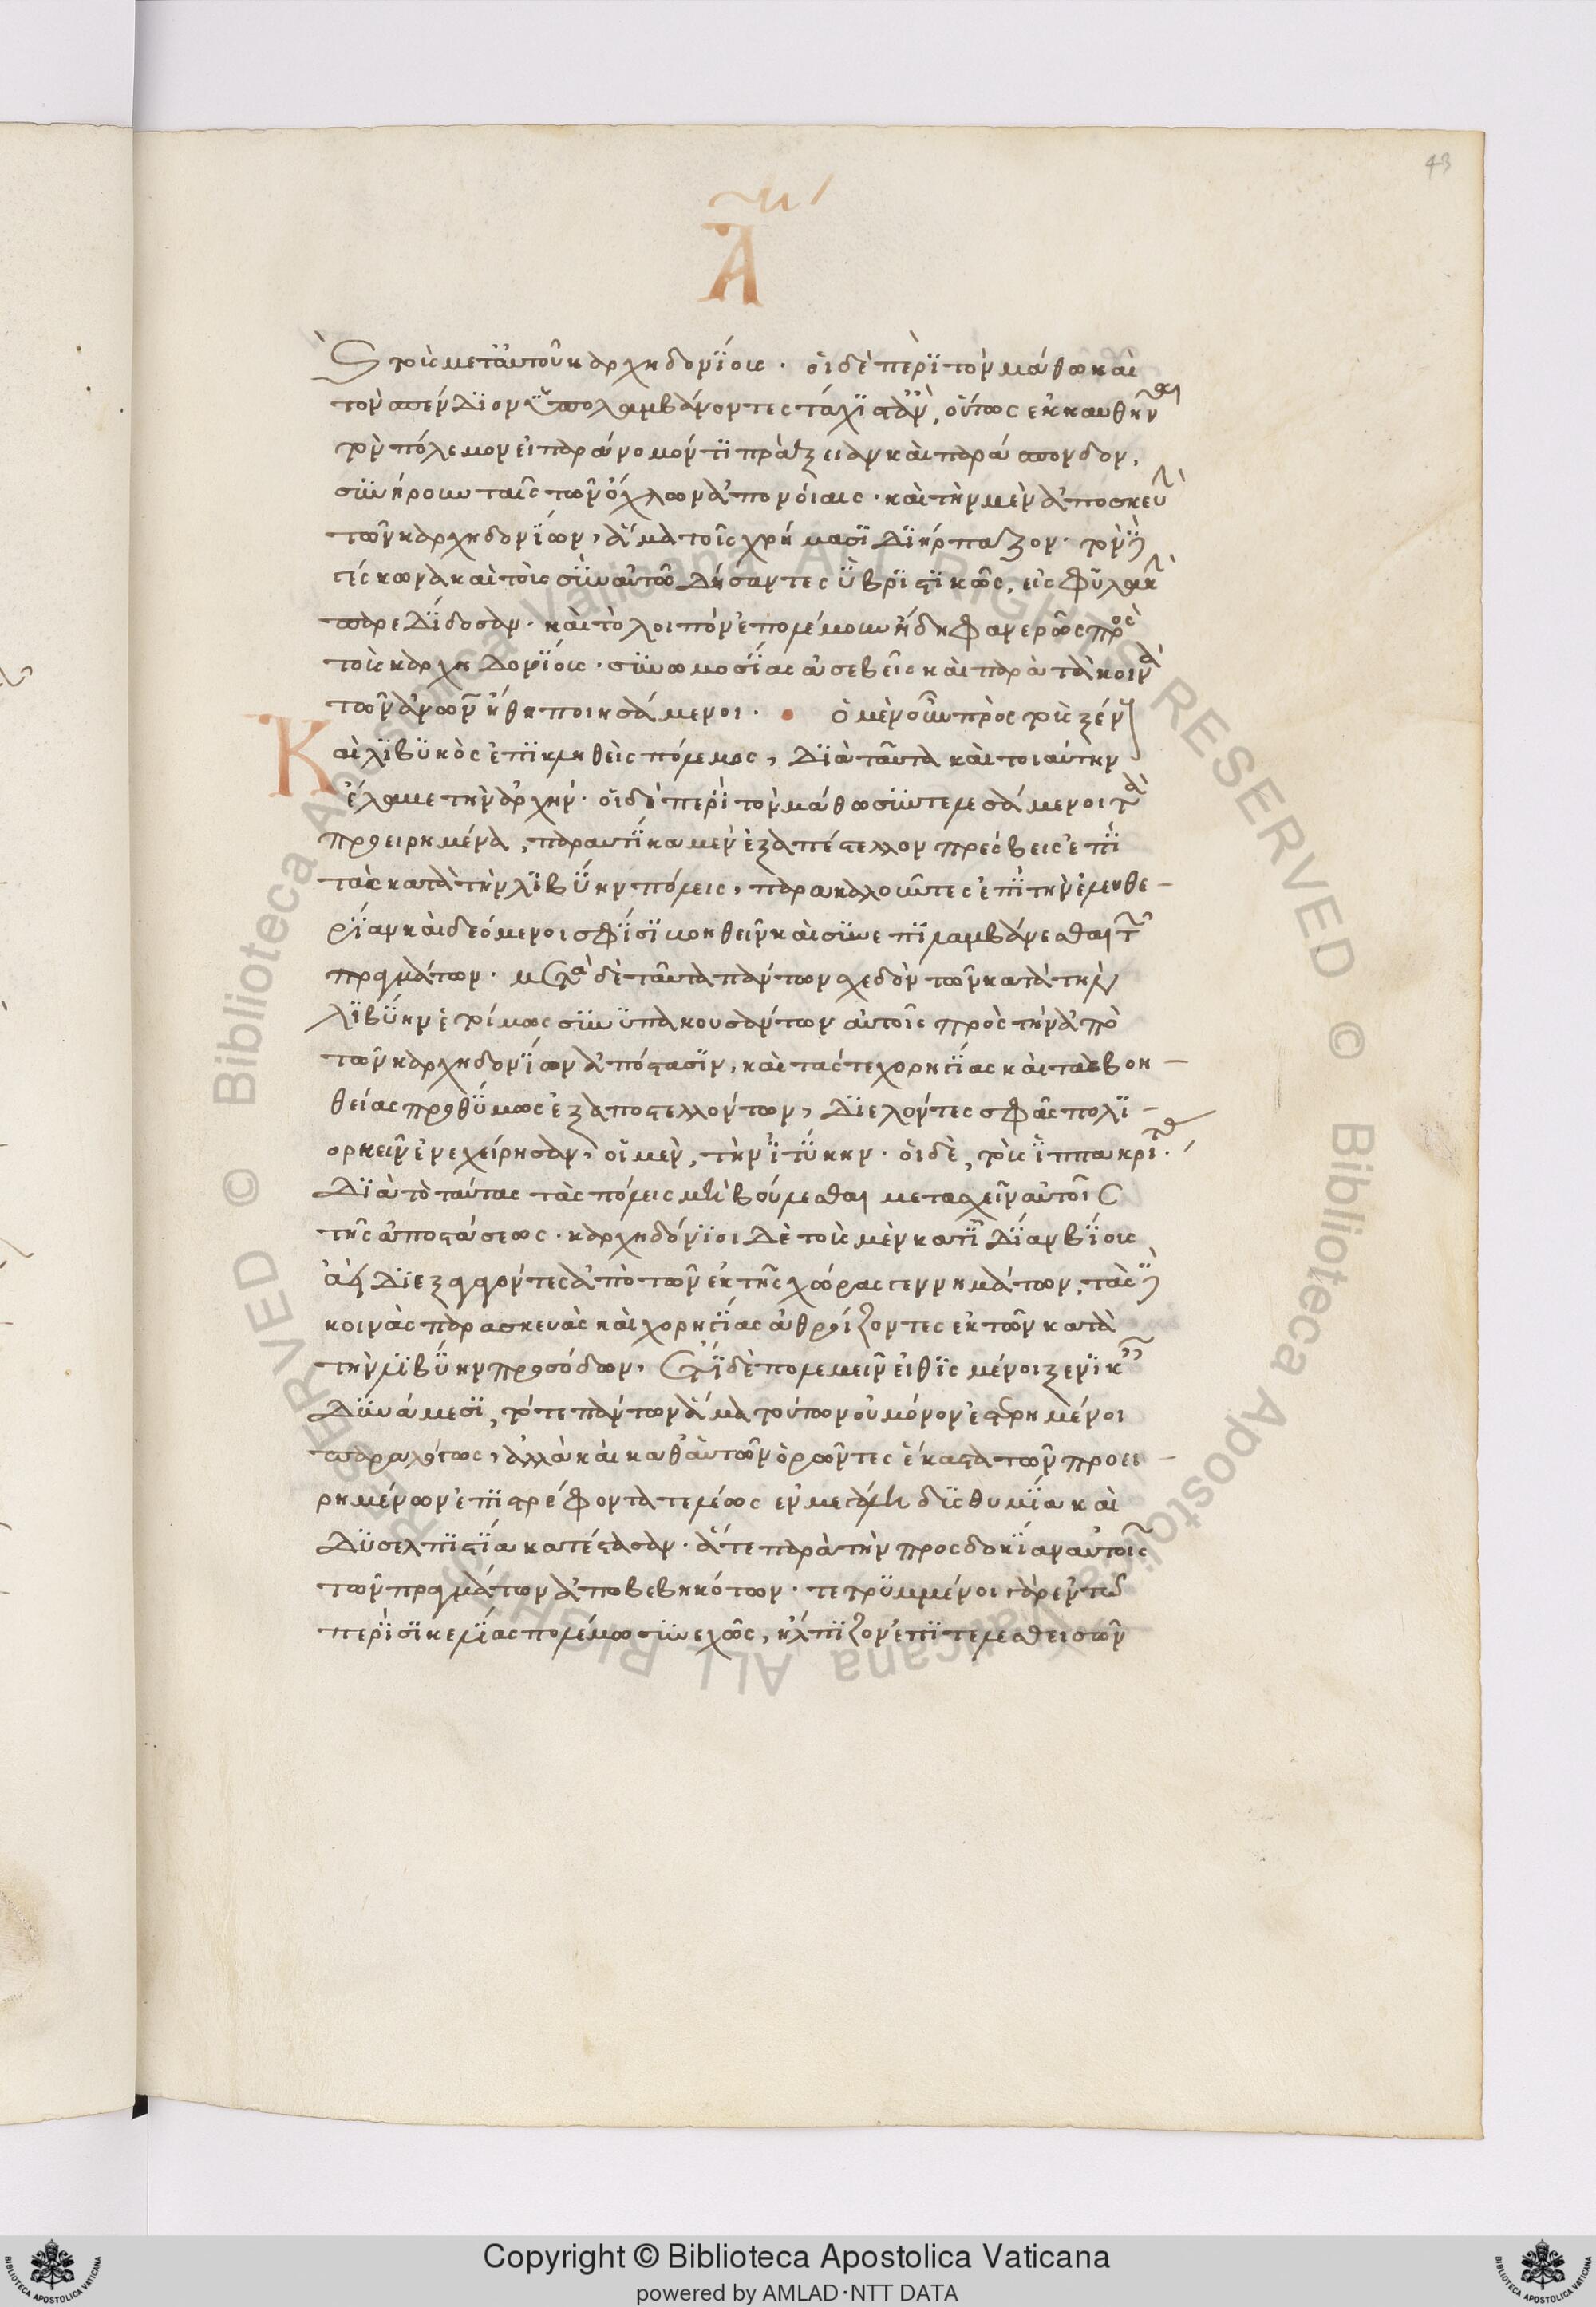 43
Α
καὶ τοὺς μετ' αὐτοῦ καρχηδονίους · οἱ δὲ περὶ τὸν μάθω καὶ
τὸν σπένδιον ὑπολαμβάνοντες τάχιστ' ἂν, οὕτως ἐκκαυθῆναι
τὸν πόλεμον εἰ παράνομόν τι πράξειαν καὶ παράσπονδον,
συνήργουν ταῖς τῶν ὄχλων ἀπονοίαις · καὶ τὴν μὲν ἀποσκευὴν
τῶν καρχηδονίων, ἅμα τοῖς χρήμασι διήρπαζον · τὸν δὲ
γέσκωνα καὶ τοὺς σὺν αὐτῶ δήσαντες ὑβριστικῶς, εἰς φυλακὴν
παρεδίδοσαν · καὶ τὸ λοιπὸν ἐπολέμουν ἤδη φανερῶς πρὸς
τοὺς καρχηδονίους · συνωμοσίας ἀσεβεῖς καὶ παρὰ τὰ κοινὰ
τῶν ἀνων ἤθη ποιησάμενοι · ὁ μὲν οὖν πρὸς τοὺς ξένους
Καὶ λιβυκὸς ἐπικληθεὶς πόλεμος, διὰ ταῦτα καὶ τοιαύτην
ἔλαβε τὴν ἀρχήν · οἱ δὲ περὶ τὸν μάθω συντελεσάμενοι τὰ
προειρημένα, παραυτίκα μὲν ἐξαπέστελλον πρέσβεις ἐπὶ
τὰς κατὰ τὴν λιβύην πόλεις, παρακαλοῦντες ἐπὶ τὴν ἐλευθε-
ρίαν καὶ δεόμενοι σφίσι βοηθεῖν καὶ συνεπιλαμβάνεσθαι τῶν
πραγμάτων · μετὰ δὲ ταῦτα πάντων σχεδὸν τῶν κατὰ τὴν
λιβύην ἑτοίμως συνυπακουσάντων αὐτοῖς πρὸς τὴν ἀπὸ
τῶν καρχηδονίων ἀπόστασιν, καὶ τάς τε χορηγίας καὶ τὰς βοη-
θείας προθύμως ἐξαποστελλόντων, διελόντες σφᾶς πολι-
ορκεῖν ἐνεχείρησαν, οἱ μὲν, τὴν ἰτύκην · οἱ δὲ, τοὺς ἱππακρίτας ·
διὰ τὸ ταύτας τὰς πόλεις μὴ βούλεσθαι μετασχεῖν αὐτοῖς
τῆς ἀποστάσεως · καρχηδόνιοι δὲ τοὺς μὲν κατ' ἰδίαν βίους
ἀεὶ διεξαγαγόντες ἀπὸ τῶν ἐκ τῆς χώρας γεννημάτων, τὰς δὲ
κοινὰς παρασκευὰς καὶ χορηγίας ἀθροίζοντες ἐκ τῶν κατὰ
τὴν λιβύην προσόδων, ἔτι δὲ πολεμεῖν εἰθισμένοι ξενικαῖς
δυνάμεσι, τότε πάντων ἅμα τούτων οὐ μόνον ἐστερημένοι
παραλόγως, ἀλλὰ καὶ καθ' αὑτῶν ὁρῶντες ἕκαστα τῶν προει-
ρημένων ἐπιστρέφοντα τελέως ἐν μεγάλη δυσθυμία καὶ
δυσελπιστία κατέστασαν · ἅτε παρὰ τὴν προσδοκίαν αὐτοῖς
τῶν πραγμάτων ἀποβεβηκότων · τετρυμμένοι γὰρ ἐν τῶ
περὶ σικελίας πολέμω συνεχῶς, ἤλπιζον ἐπιτελεσθεισῶν